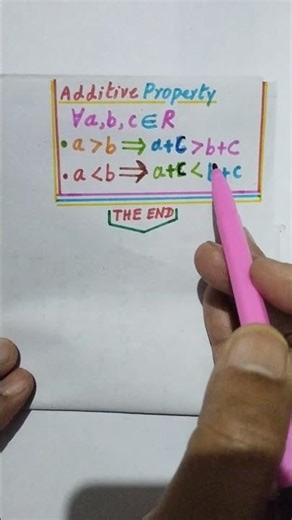 Additive Property
∀a,b,c∈R
• a > b ⇒ a+C > b+C
• a < b ⇒ a+C < b+C
THE END